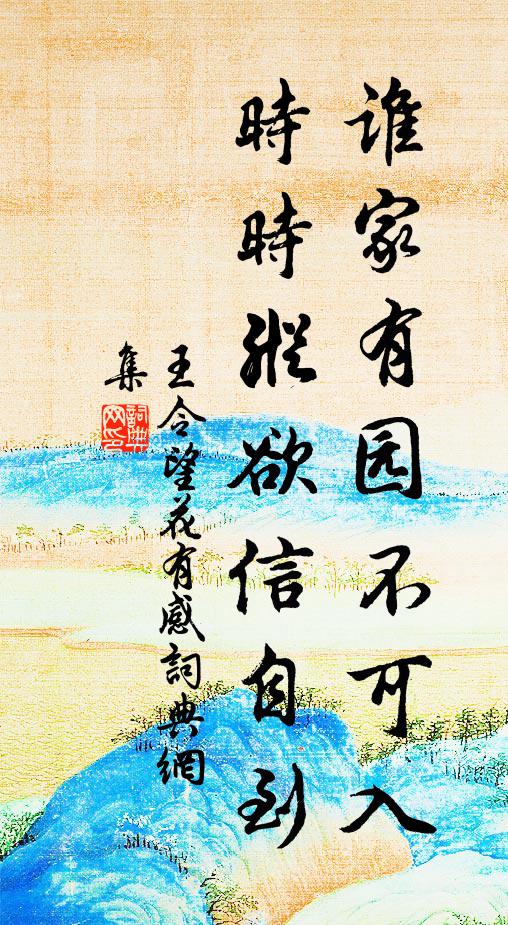 谁家有园不可入
時時縱欲信自到
王令望花有感詞典網
集
詞典網印